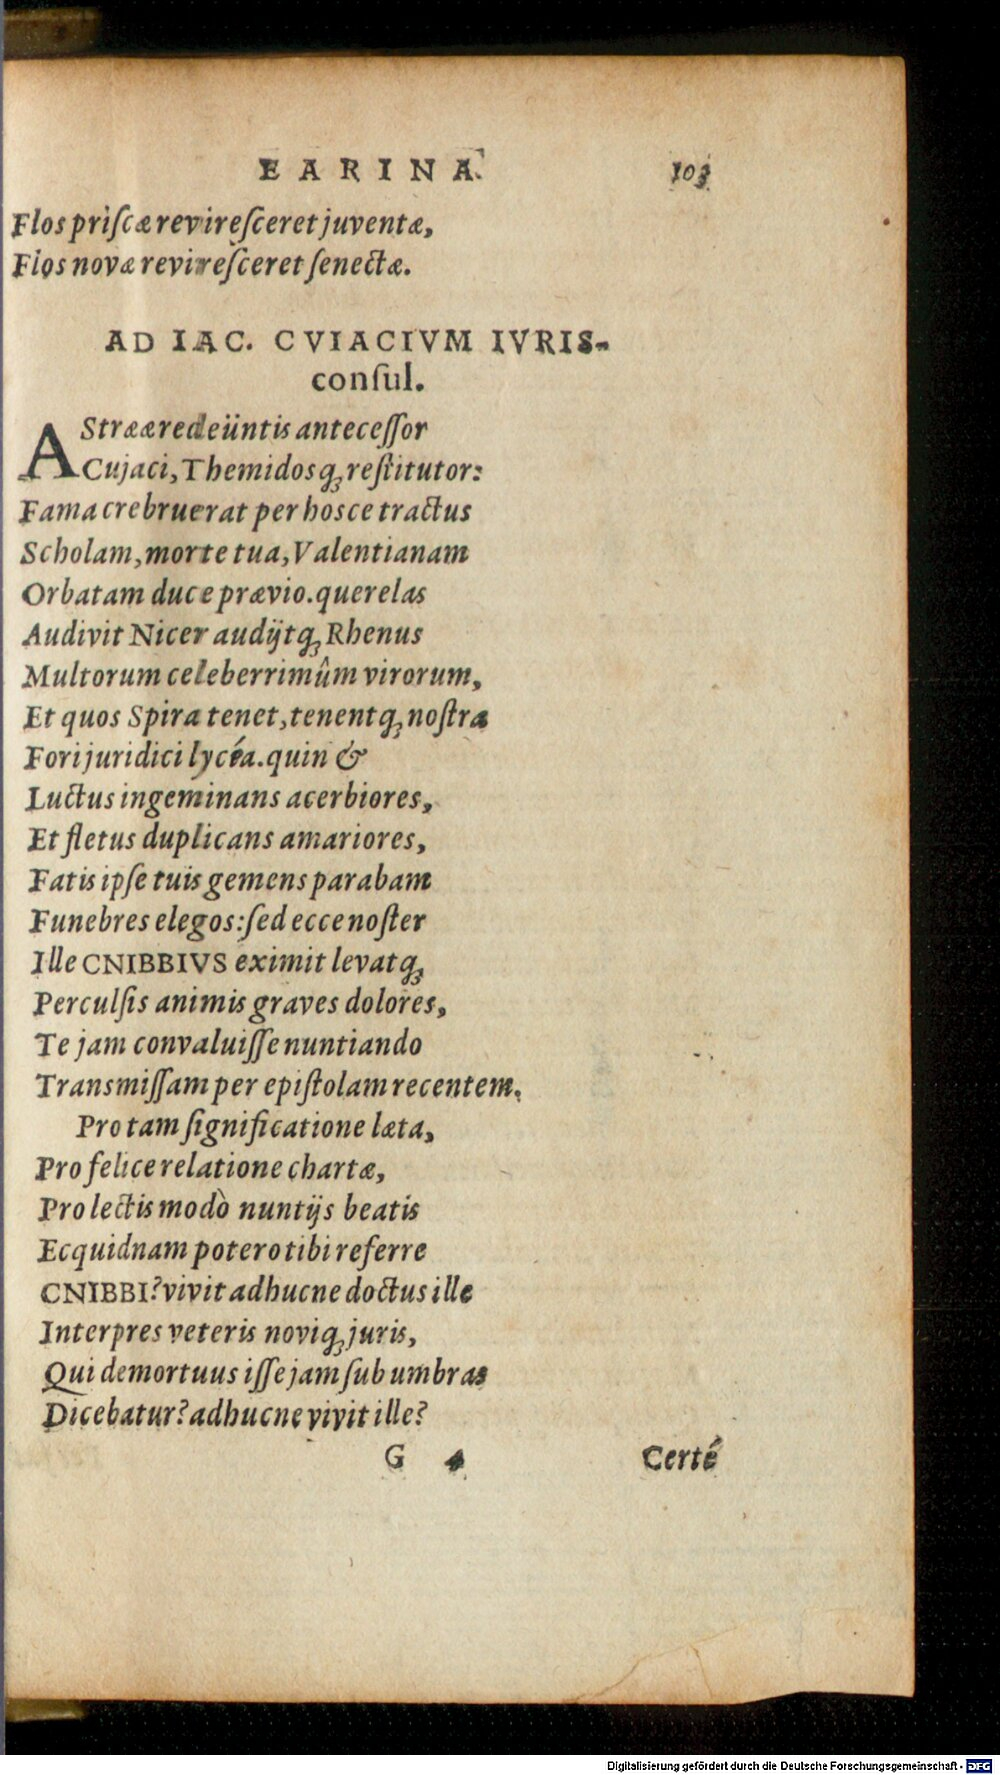 EARINA. 103
Flos priſcæ revireſceret juventæ,
Flos novæ revireſceret ſenectæ.
AD IAC. CVIACIVM IVRIS-
conſul.
AStrææ redeüntis anteceſſor
Cujaci, Themidosq́ꝫ reſtitutor:
Fama crebruerat per hosce tractus
Scholam, morte tua, Valentianam
Orbatam duce prævio. querelas
Audivit Nicer audijtq́ꝫ Rhenus
Multorum celeberrimûm virorum,
Et quos Spira tenet, tenentq́ꝫ noſtra
Fori juridici lycéa. quin &
Luctus ingeminans acerbiores,
Et fletus duplicans amariores,
Fatis ipſe tuis gemens parabam
Funebres elegos: ſed ecce noſter
Ille CNIBBIVS eximit levatq́ꝫ
Perculſis animis graves dolores,
Te jam convaluiſſe nuntiando
Transmiſſam per epiſtolam recentem.
Pro tam ſignificatione læta,
Pro felice relatione chartæ,
Pro lectis modò nuntijs beatis
Ecquidnam potero tibi referre
CNIBBI? vivit adhucne doctus ille
Interpres veteris noviq́ꝫ juris,
Qui demortuus iſſe jam ſub umbras
Dicebatur? adhucne vivit ille?
G 4 Certé
Digitalisierung gefördert durch die Deutsche Forschungsgemeinschaft - DFG